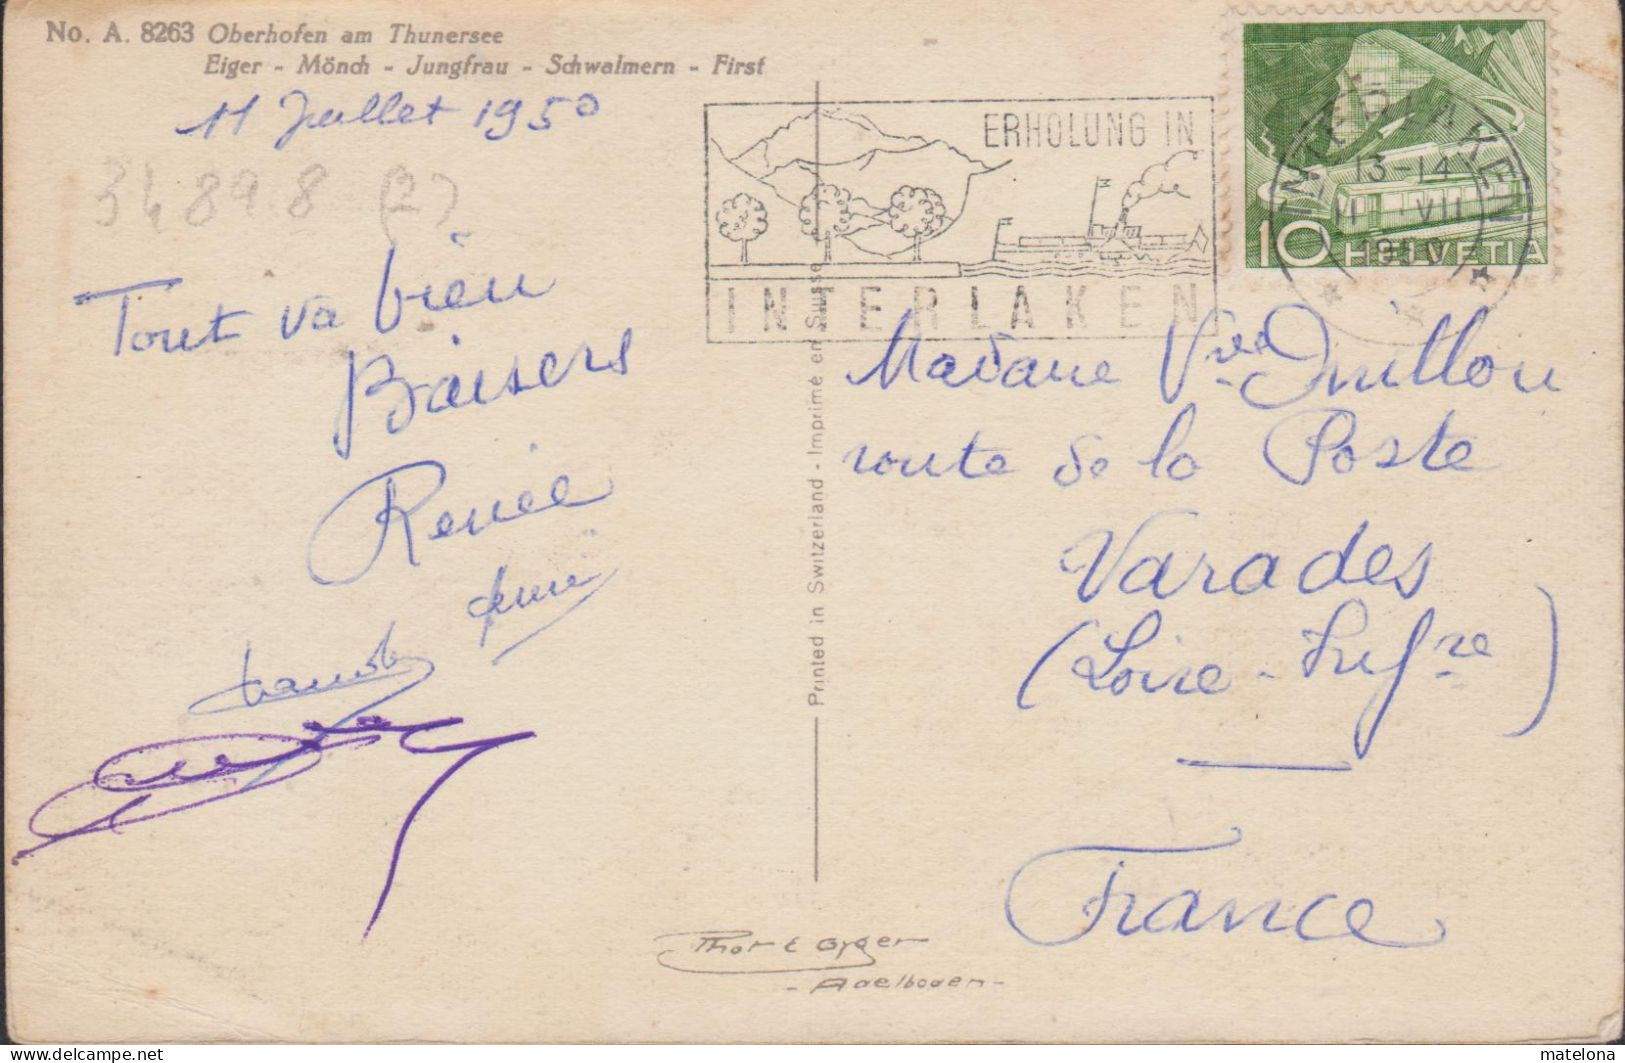 No. A. 8263 Oberhofen am Thunersee
Eiger - Mönch - Jungfrau - Schwalmern - First
11 Juillet 1950
34898 (2)
Tout va bien
Baisers
Renée
ERHOLUNG IN
INTERLAKEN
INTERLAKEN
13-14
11 VII
1950
10 HELVETIA
Madame Vve Guillou
route de la Poste
Varades
(Loire-Infre)
France
Printed in Switzerland - Imprimé en Suisse
Phot E Gyger
- Adelboden -
www.delcampe.net
matelona